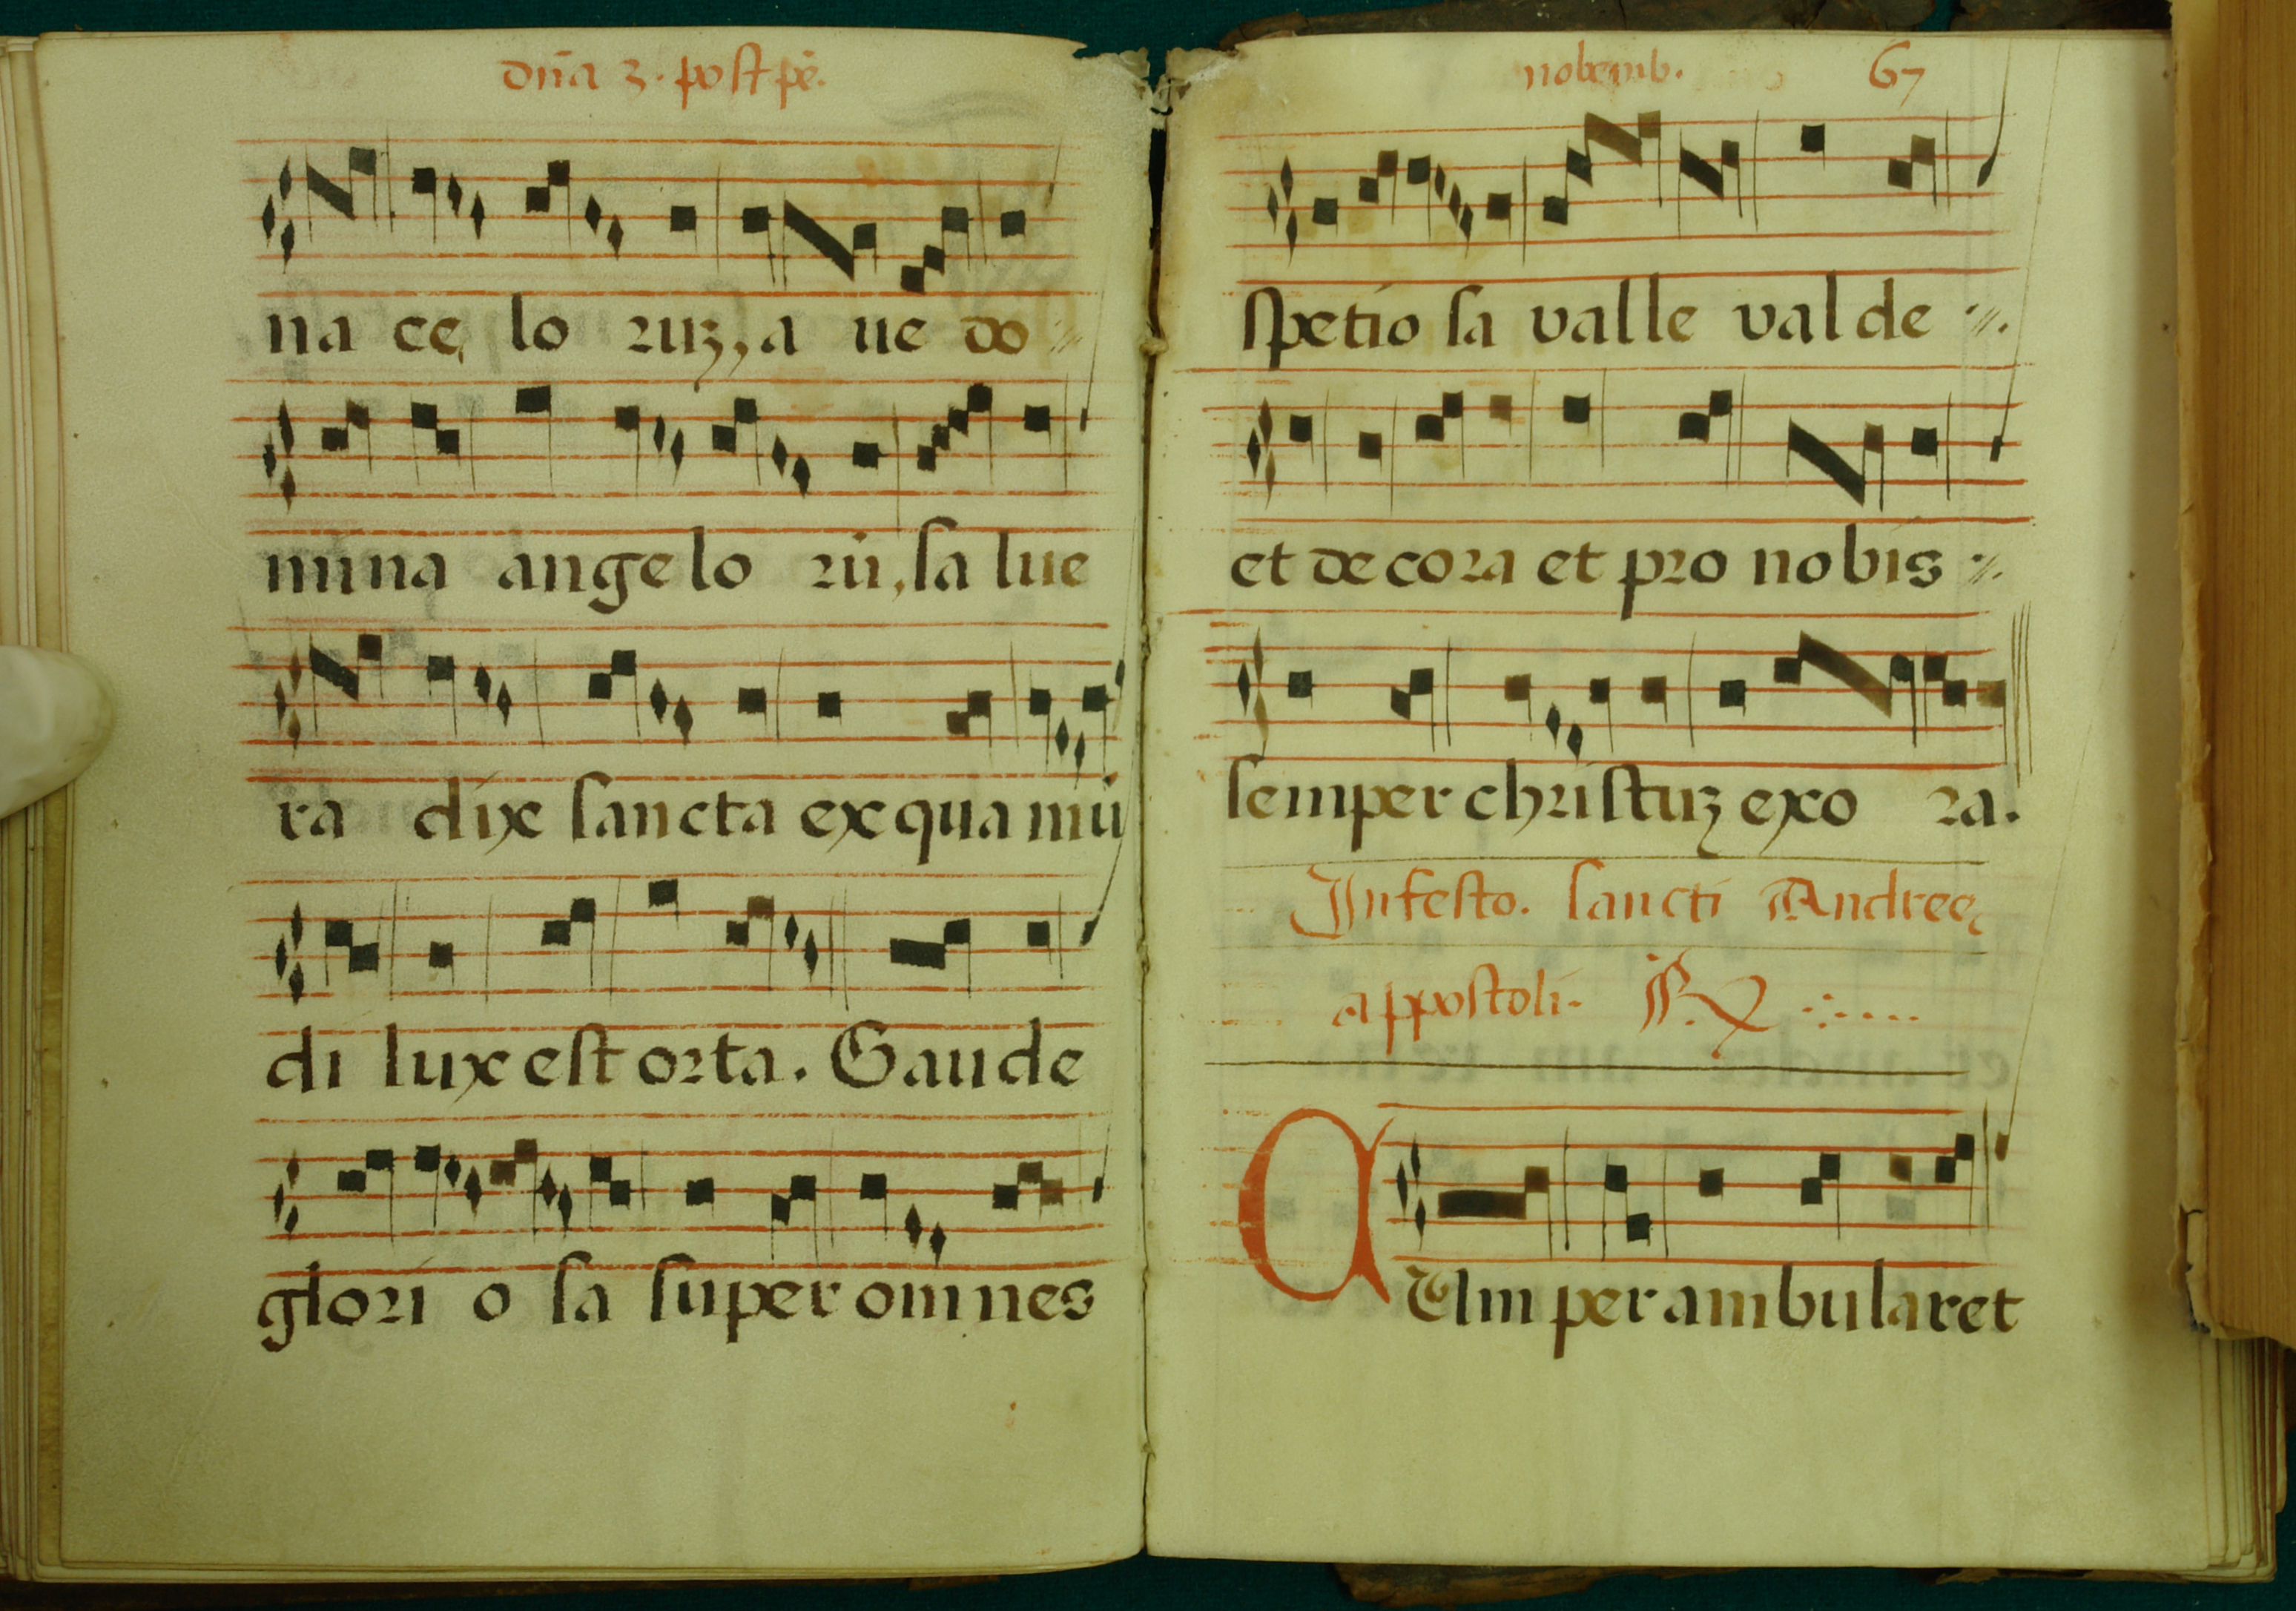 dn̄a 3. post pē.
na ce lo ruz, a ue do
mina angelo rū, salue
ra dix sancta ex qua mū
di lux est orta. Gaude
glori o sa super omnes
nobemb. 67
spetio sa valle valde
et decora et pro nobis
semper christuz exo ra.
In festo. sancti Andreę
appostoli.
CUm per ambularet